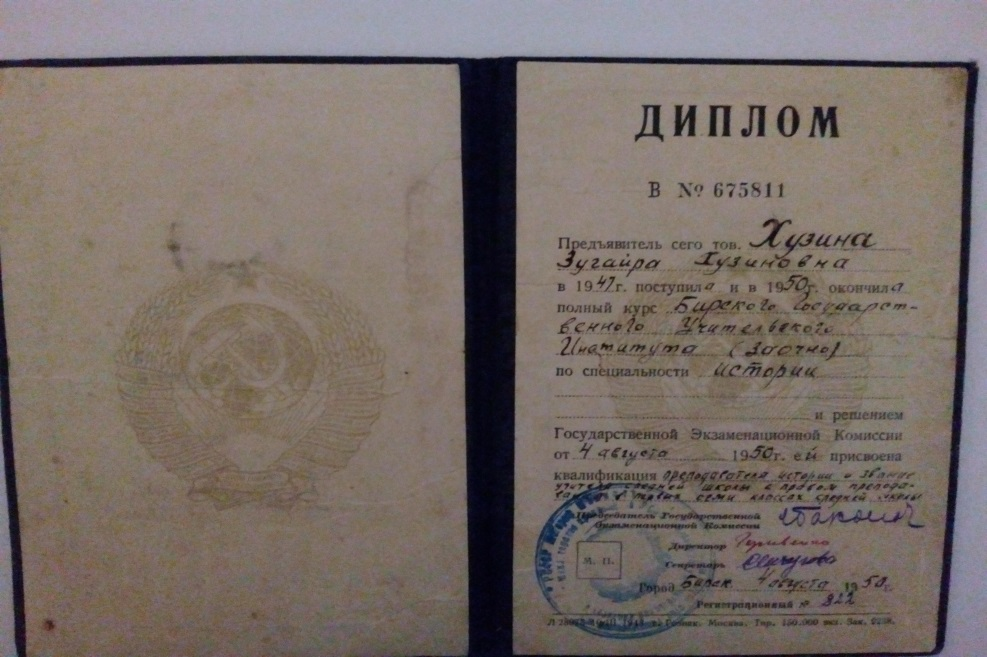 ДИПЛОМ
В № 675811
Предъявитель сего тов. Хузина
Зугайра Хузиновна
в 1947г. поступила и в 1950г. окончила
полный курс Бирского Государст-
венного Учительского
Института (заочно)
по специальности истории
и решением
Государственной Экзаменационной Комиссии
от 4 августа 1950г. ей присвоена
квалификация преподавателя истории и звание
учителя средней школы с правом препода-
вания в первых семи классах средней школы
Председатель Государственной
Экзаменационной Комиссии
Директор
Секретарь
М. П.
Город Бирск 4 августа 1950г.
Регистрационный № 322
Москва. Тир. 150.000 экз. Зак.